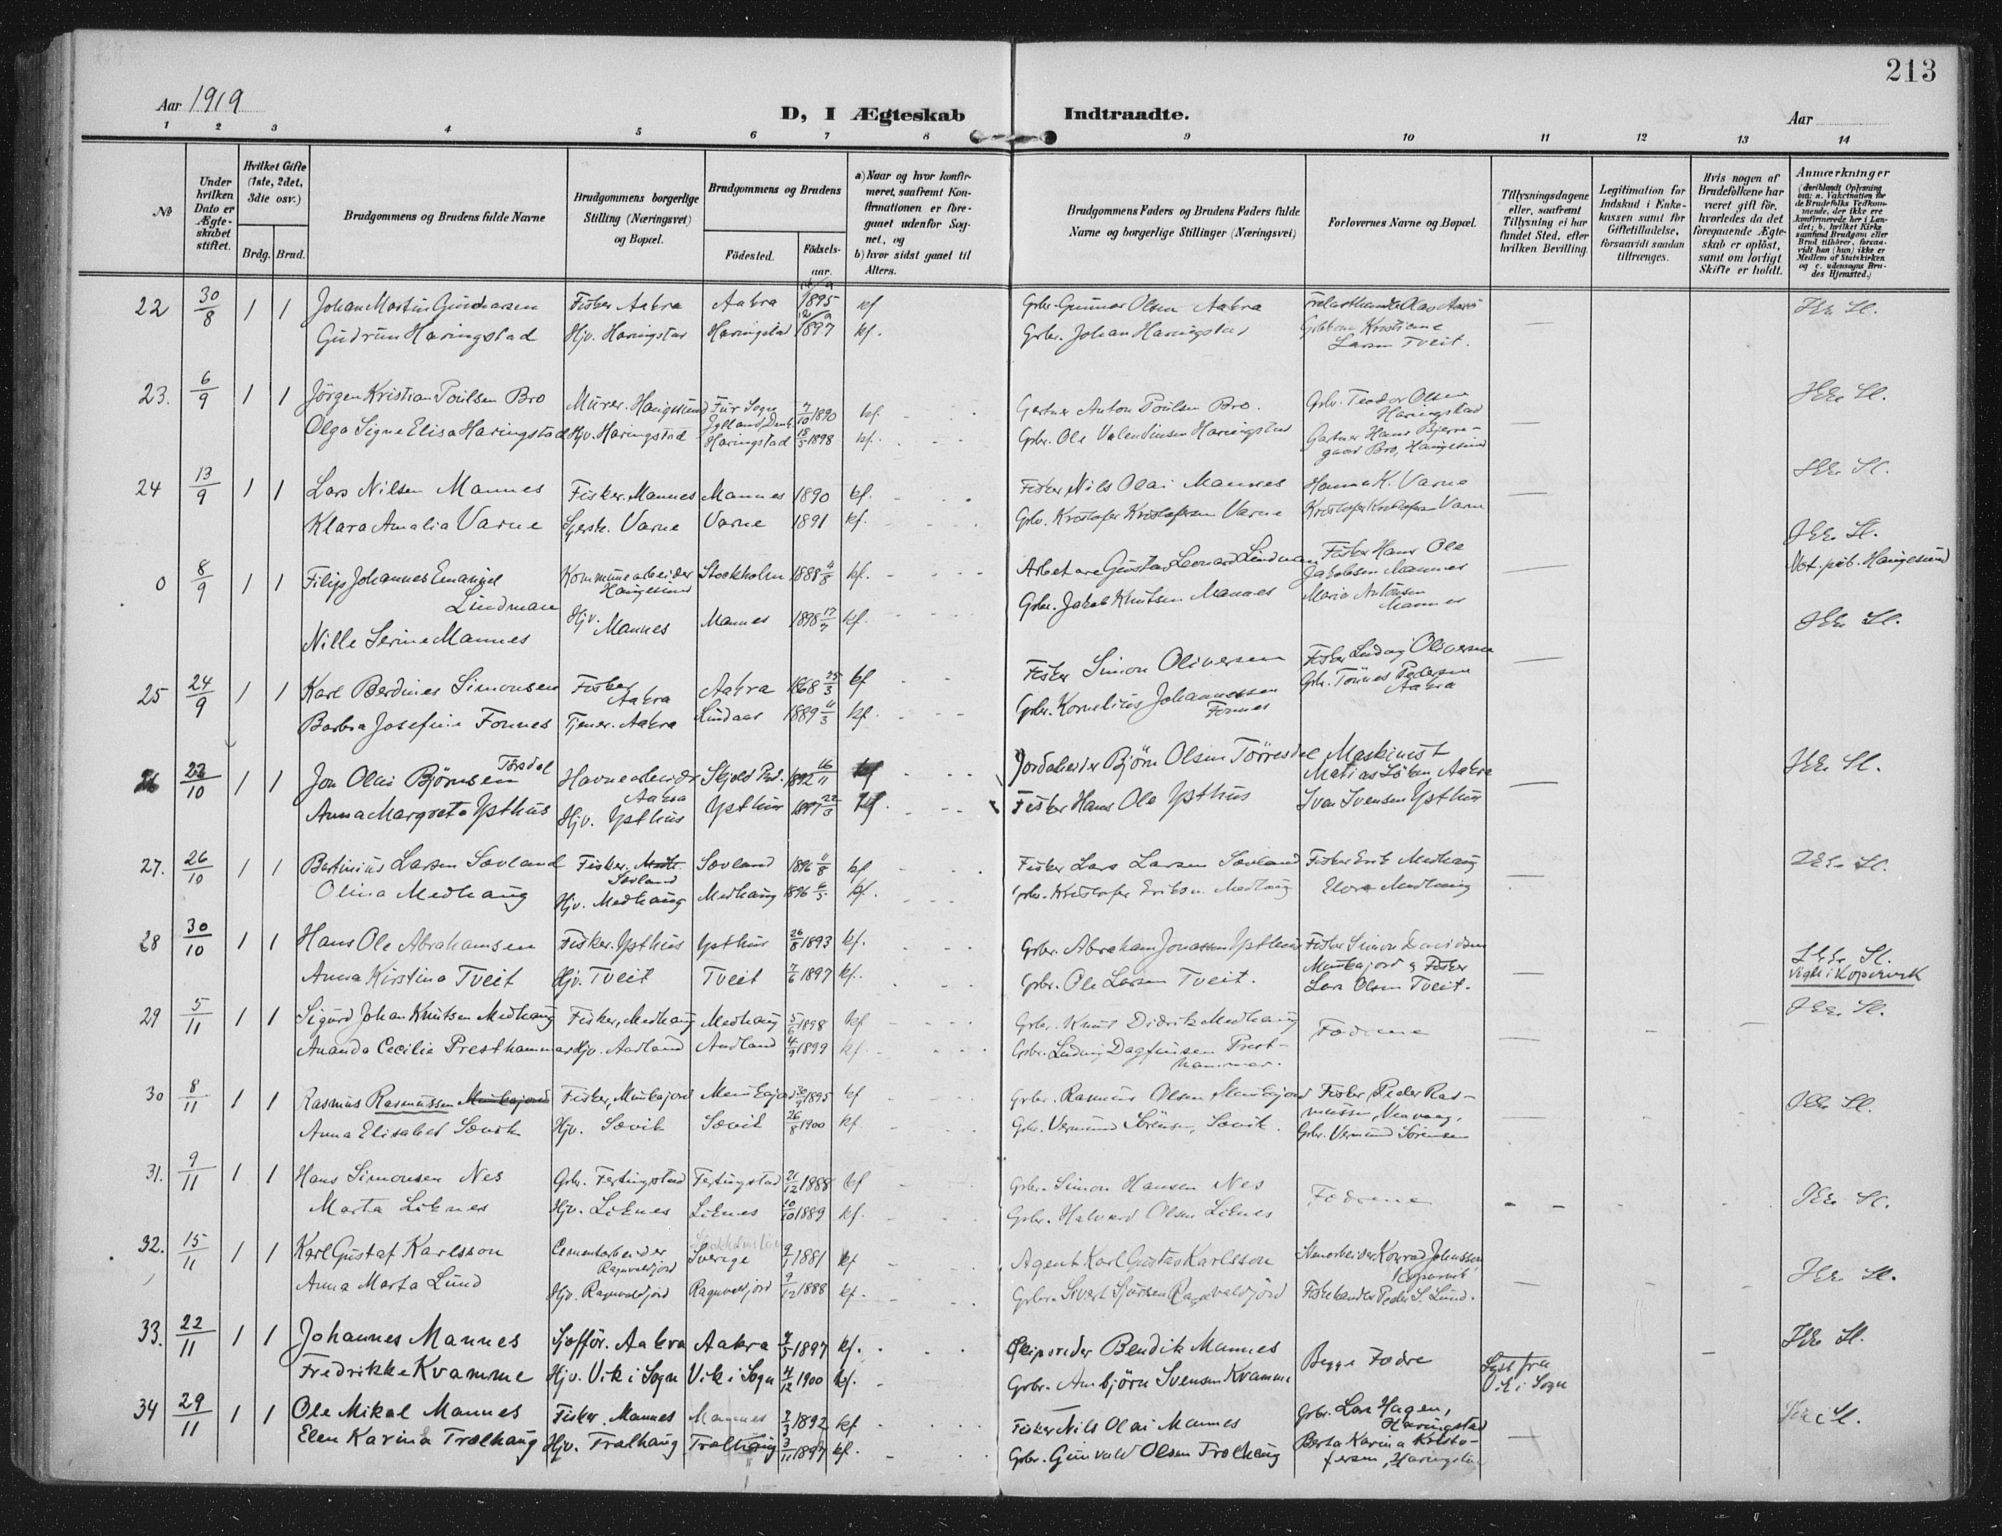 213
Aar 1919
D, I Ægteskab Indtraadte.
Aar
1 2 3 4 5 6 7 8 9 10 11 12 13 14
№
Under hvilken Dato er Ægteskabet stiftet.
Hvilket Gifte (1ste, 2det, 3die osv.)
Brdg. Brud.
Brudgommens og Brudens fulde Navne
Brudgommens borgerlige Stilling (Næringsvei) og Bopæl.
Brudgommens og Brudens
Fødested. Fødselsaar.
a) Naar og hvor konfirmeret, saafremt Konfirmationen er foregaaet udenfor Sognet, og
b) hvor sidst gaaet til Alters.
Brudgommens Faders og Brudens Faders fulde Navne og borgerlige Stillinger (Næringsvei)
Forlovernes Navne og Bopæl.
Tillysningsdagene eller, saafremt Tillysning ei har fundet Sted, efter hvilken Bevilling.
Legitimation for Indskud i Enkekassen samt for Giftetilladelse, forsaavidt saadan tiltrænges.
Hvis nogen af Brudefolkene har været gift før, hvorledes da det foregaaende Ægteskab er opløst, samt om lovligt Skifte er holdt.
Anmærkninger
22 30/8 1 1 Johan Martin Gundersen Fisker Aakra Aakra 1895 kf Grbr. Gunnar Olsen Aakra
Gudrun Haringstad Hjv. Haringstad Haringstad 1897 kf. Grbr. Johan Haringstad Kristiane
Larsen Tveit.
23. 6/9 1 1 Jörgen Kristian Poulsen Bro Murer. Haugesund Fur Sogn Jylland, Danm. 7/10 1890 kf. Gartner Anton Poulsen Bro. Grbr. Teodor Olsen Haringstad
Olga Signe Elisa Haringstad Hjv. Haringstad Haringstad 18/5 1898 kf. Grbr. Ole Valentinsen Haringstad Gartner Hans Bjerregaard Bro, Haugesund
24 13/9 1 1 Lars Nilsen Mannes Fisker. Mannes Mannes 1890 kf. Fisker Nils Olai Mannes Hanna K. Varne
Klara Amalia Varne Varne Varne 1891 kf. Grbr. Kristofer Kristofersen Varne Kristofer Kristofersen Varne
0 8/9 1 1 Filip Johannes Emanuel Lindman Kommunearbeider Haugesund Stockholm 1888 4/8 kf. Arbetare Gustav Leonard Lindman Fisker Hans Ole Jakobsen Mannes Not. pub. Haugesund
Nille Serine Mannes Hjv. Mannes Mannes 1898 17/7 kf. Grbr. Jakob Knutsen Mannes Maria Antonsen Mannes
25 24/9 1 1 Karl Berdines Simonsen Fisker Aakra Aakra 1868 25/3 kf Fisker Simon Oliversen Fisker Ludvig Oliversen
Barbra Josefine Fonnes Tjener. Aakra Lindaas 1889 11/3 kf. Grbr. Kornelius Johannessen Fonnes Grbr. Tönnes Pedersen Aakra
26 23/10 1 1 Jon Olai Björnsen Törsdal Havnearbeider Aakra Skjold Prd. 1892 16/11 kf Jordarbeider Björn Olsen Törresdal Maskinist Matias Aakra
Anna Margreta Ysthus Hjv. Ysthus Ysthus 1897 22/3 kf Fisker Hans Ole Ysthus Svan Svensen Ysthus
27. 26/10 1 1 Bertinius Larsen Sævland Fisker. Sævland Sævland 1896 11/8 kf Fisker Lars Larsen Sævland Fisker Erik Medhaug
Olina Medhaug Hjv. Medhaug Medhaug 1896 4/5 kf. Grbr. Kristofer Eriksen Medhaug Medhaug
28 30/10 1 1 Hans Ole Abrahamsen Fisker. Ysthus Ysthus 26/8 1893 kf. Grbr. Abraham Jonassen Ysthus Fisker Simon Davidsen
Anna Kirstina Tveit Hjv. Tveit Tveit 7/6 1897 kf. Grbr. Ole Larsen Tveit. Munkajord & Fisker Lars Olsen Tveit. Vighi Kopervik
29 5/11 1 1 Sigurd Johan Knutsen Medhaug Fisker, Medhaug Medhaug 5/6 1898 kf Grbr. Knut Didrik Medhaug Fædrene
Ananda Cecilie Presthammer Hjv. Aadland Aadland 4/9 1899 kf. Grbr. Ludvig Dagfinsen Presthammer.
30 8/11 1 1 Rasmus Rasmussen Munkajord Fisker, Munkajord Munkajord 30/9 1895 kf Grbr. Rasmus Olsen Munkajord Fisker Peder Rasmussen, Veavaag,
Anna Elisabet Sævik Hjv. Sævik Sævik 26/8 1900 kf. Grbr. Vermund Sörensen, Sævik. Grbr. Vermund Sörensen
31. 9/11 1 1 Hans Simonsen Nes Grbr. Ferkingstad Ferkingstad 21/12 1888 kf Grbr. Simon Hansen Nes Fædrene
Marta Liknes Hjv. Liknes Liknes 10/10 1889 kf. Grbr. Halvard Olsen Liknes
32. 15/11 1 1 Karl Gustaf Karlsson Cementarbeider Ragnvaldjord Sverige 9/1 1881 kf Agent Karl Gustav Karlsson Stenarbeider Konrad Johnsson, Kopervik
Anna Marta Lund Hjv. Ragnvaldjord Ragnvaldjord 9/12 1888 kf. Grbr. Sivert Sjursen Ragnvaldjord Fiskehandler Peder S. Lund.
33. 22/11 1 1 Johannes Mannes Sjåfför. Aakra Aakra 7/5 1897 kf. Skipsreder Bendik Mannes Begge Fædre Lyst fra Vik i Sogn
Fredrikke Kvamme Hjv. Vik i Sogn Vik i Sogn 4/12 1900 kf. Grbr. Ambjörn Svensen Kvamme
34 29/11 1 1 Ole Mikal Mannes Fisker. Mannes Mannes 7/3 1892 kf Fisker Nils Olai Mannes Grbr. Lars Hagen, Haringstad
Elen Karina Trælhaug Hjv. Trælhaug Trælhaug 3/11 1897 kf. Grbr. Gunvald Olsen Trælhaug Berta Karina Kristofersen, Haringstad